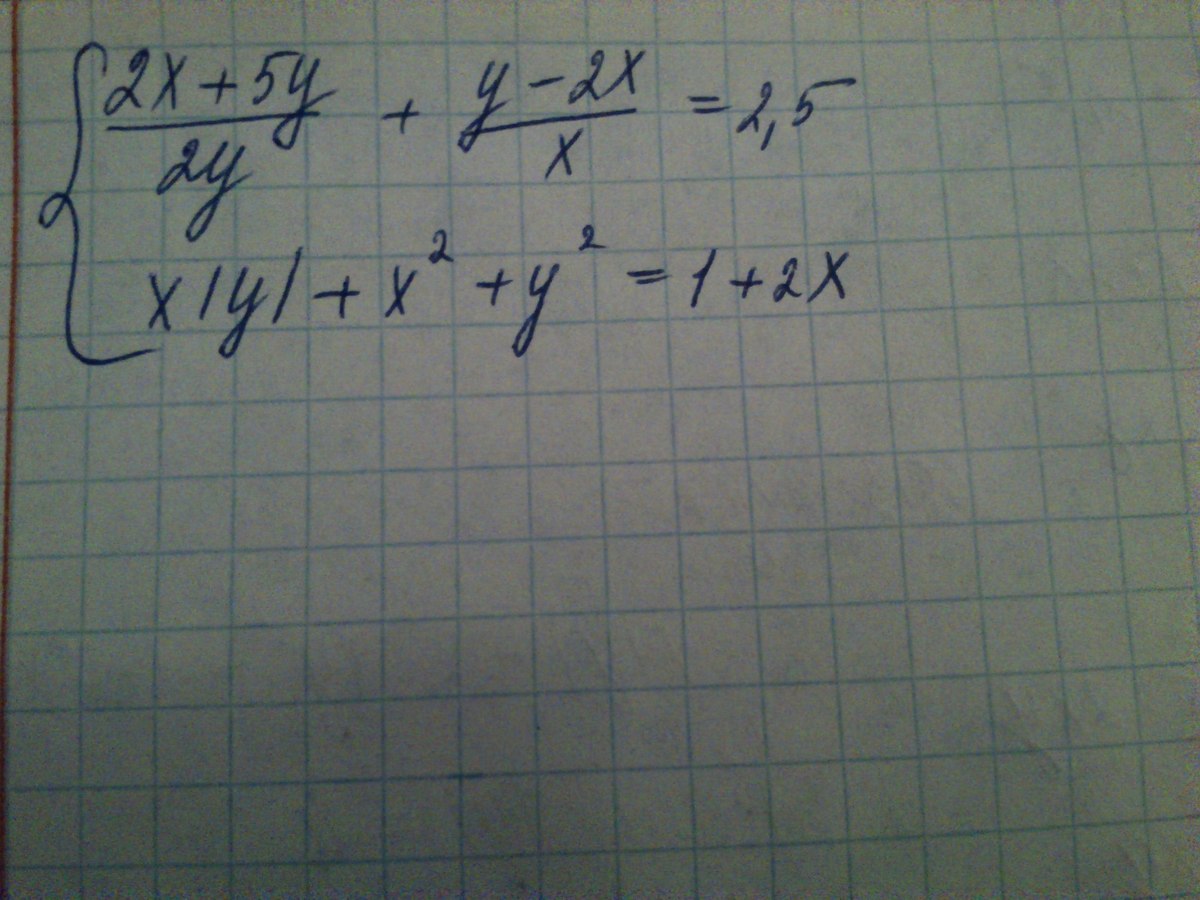 (2x + 5y)/(2y) + (y - 2x)/x = 2,5
x|y| + x² + y² = 1 + 2x